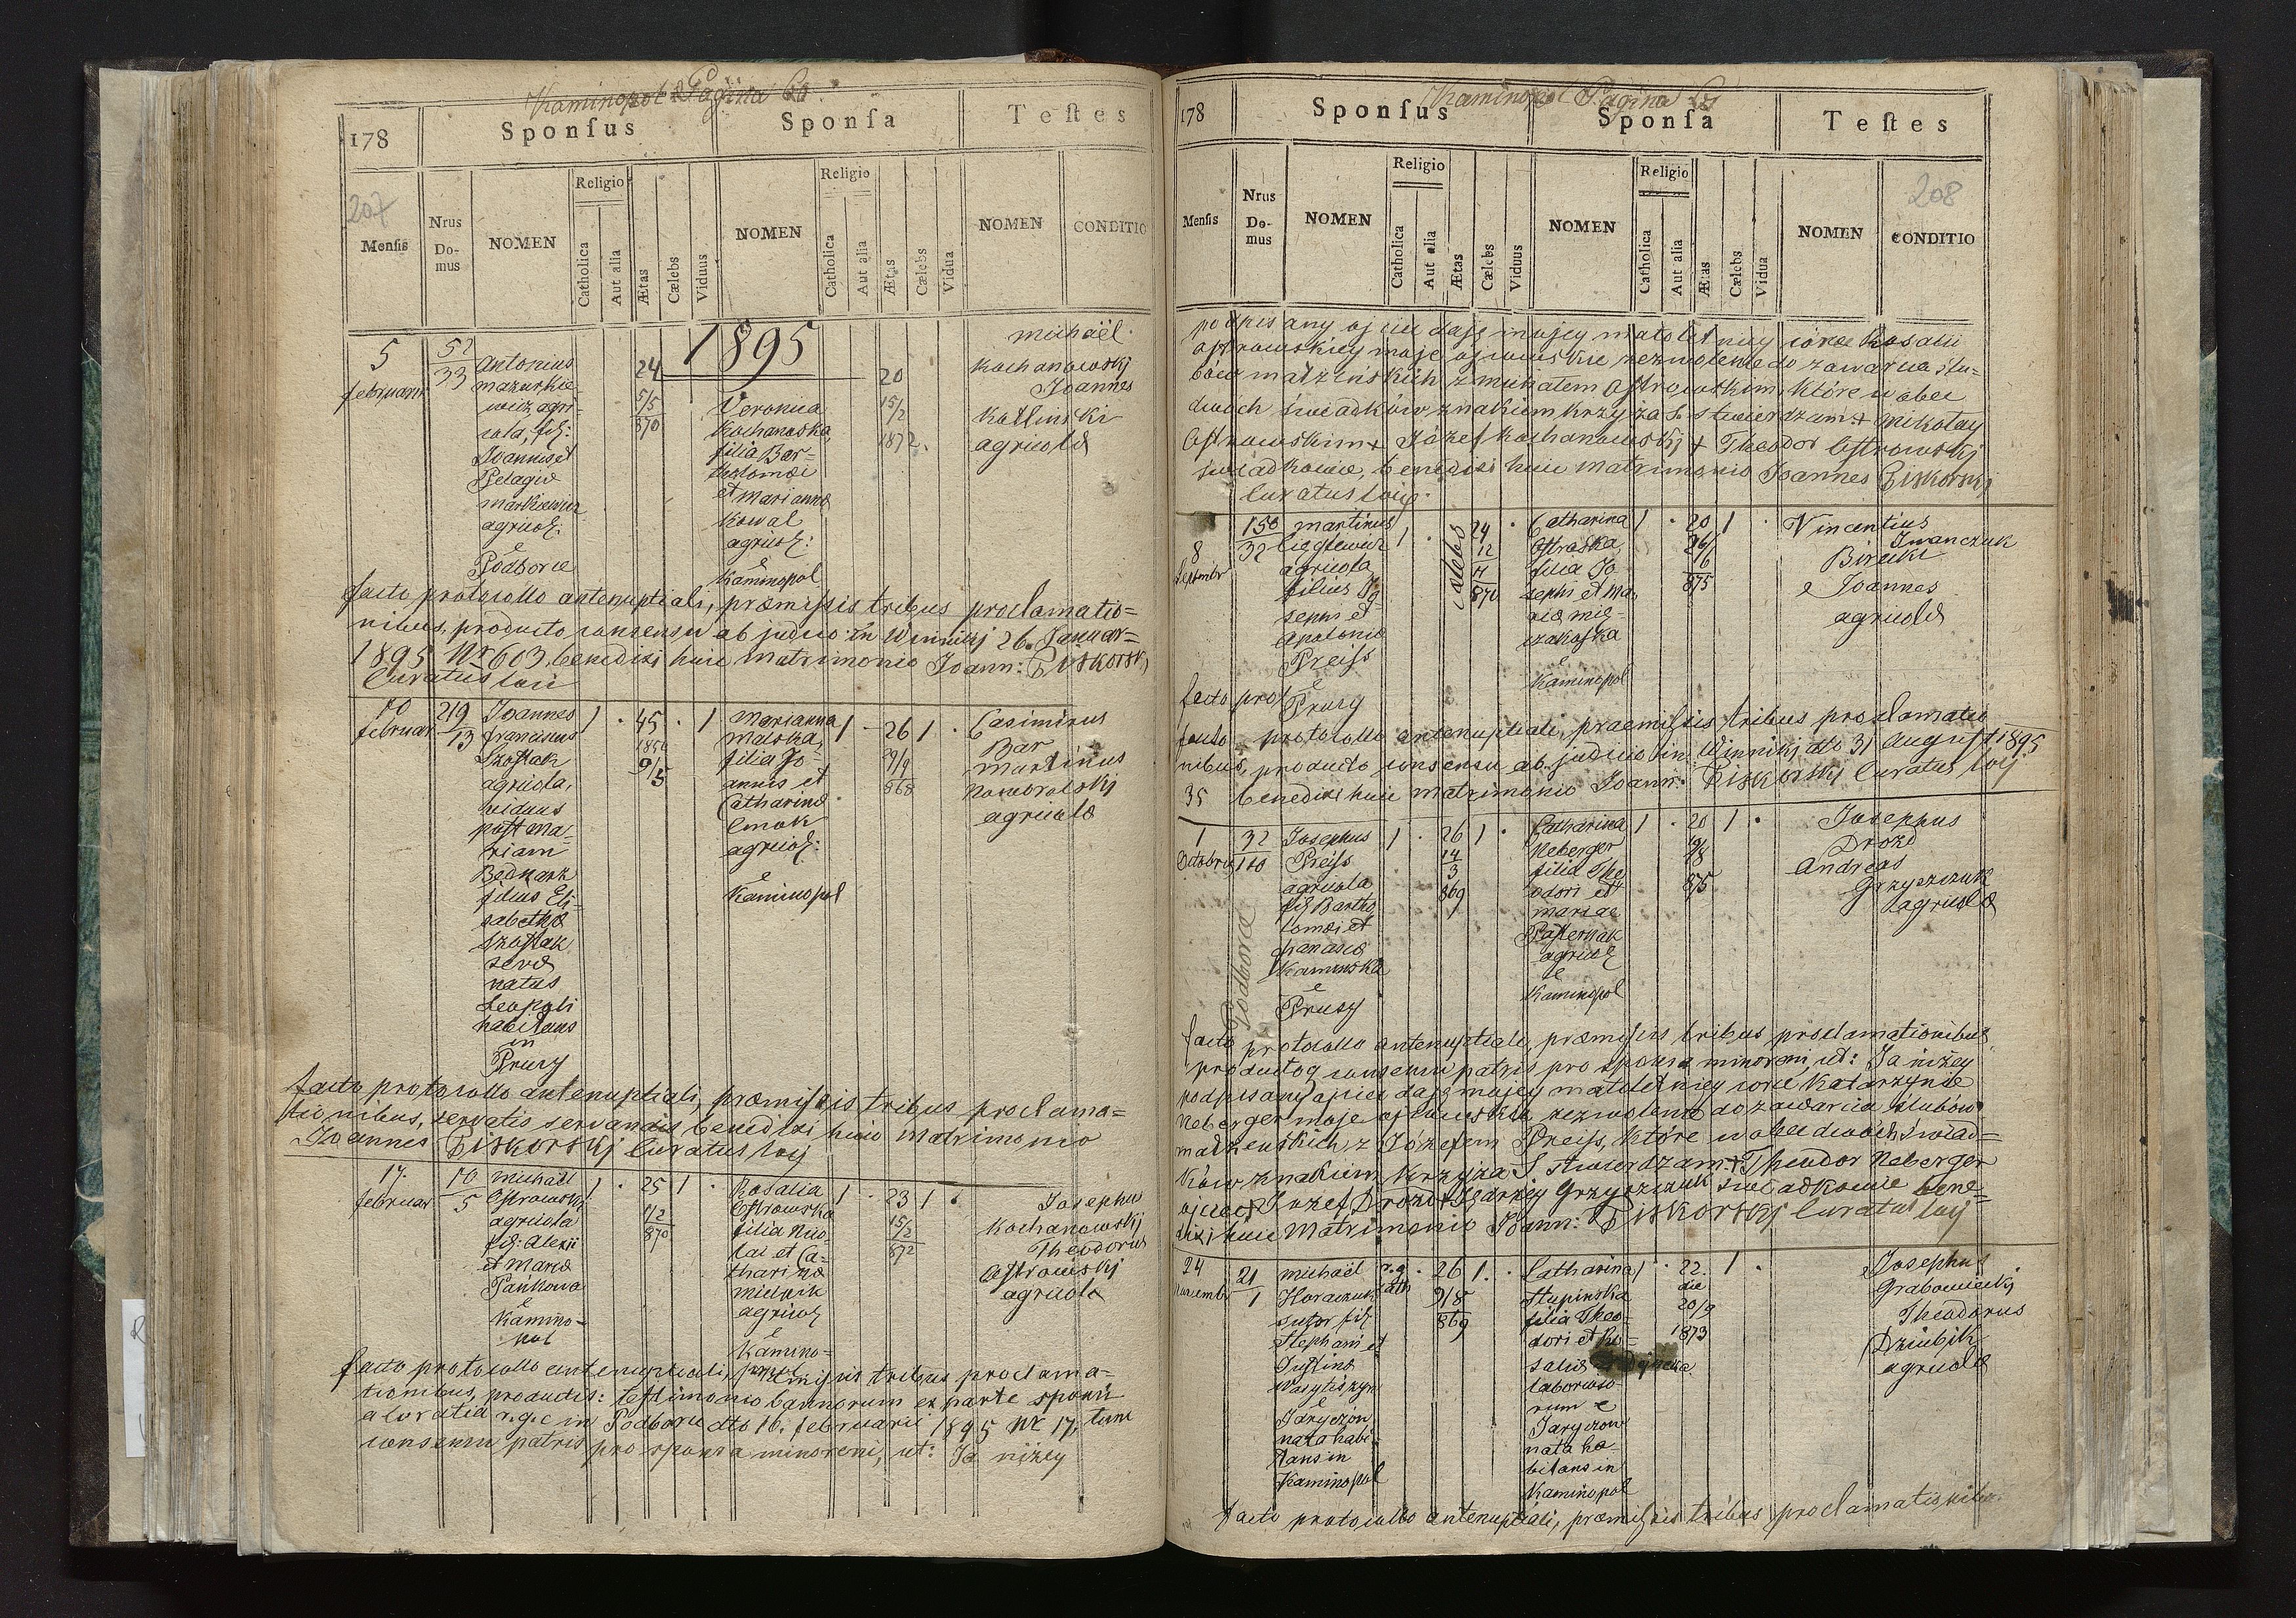 Kaminopol Pagina
178
Sponſus
Sponſa
Teſtes
207
Menſis
Nrus Domus
NOMEN
Religio
Catholica
Aut alia
Ætas
Cælebs
Viduus
NOMEN
Religio
Catholica
Aut alia
Ætas
Cælebs
Vidua
NOMEN
CONDITIO
1895
5
februarii
52
33
Antonius
mazurkie
wicz, agri-
cola, fil:
Joannis et
Pelagiæ
markiewicz
agricol:
e
Podborce
24
5/5
870
Veronica
Kochanoska,
filia Bar-
tholomæi
et Mariannæ
Kowal
agricol:
e
Kaminopol
20
15/2
1872.
michaël
Kochanowskj
Joannes
Kotlinski
agricolæ
facto protocollo antenuptiali, præmiſsis tribus proclamatio=
nibus, producto consensu ab judicio in Winnikj 26. Januar=
1895 Nr 603, benedixi huic matrimonio Joann: Piskorskj
Curatus loci
10
februar
219
13
Joannes
franciscus
Szoſtak
agricola,
viduus
poſt Ma-
riam
Bednarz
filius Eli-
sabethæ
Szoſtak
servæ
natus
Leopoli
habitans
in
Prusy
1 · 45 · 1
1850
9/5
Marianna
Malska,
filia Jo-
annis et
Catharinæ
Cmok
agricol:
e
Kaminopol
1 - 26 1 ·
29/9
868
Casimirus
Bar
Martinus
Nawolskj
agricolæ
facto protocollo antenuptiali, præmiſsis tribus proclama=
tionibus, servatis servandis benedixi huic matrimonio
Joannes Piskorskj Curatus loci
17.
februar
10
5
Michaël
Oſtrowskj
agricola
fil: Alexii
et Mariæ
Pańkowa
e
Kamino-
pol
1 · 25 1 ·
11/2
870
Rosalia
Oſtrowska
filia Nico-
lai et Ca-
tharinæ
Mielnik
agricol
e
Kamino=
pol
1 · 23 1 ·
15/2
872
Josephus
Kochanowskj
Theodorus
Oſtrowskj
agricolæ
facto protocollo antenuptiali, præmiſsis tribus proclama-
tionibus, productis: teſtimonio bannorum ex parte sponsi
a Curatia r.g.c in Podborce dto 16. februarii 1895 Nr 17, tum
consensu patris pro sponsa minoreni, ut: Ja niżey
Kaminopol Pagina
178
Sponſus
Sponſa
Teſtes
208
Menſis
Nrus Domus
NOMEN
Religio
Catholica
Aut alia
Ætas
Cælebs
Viduus
NOMEN
Religio
Catholica
Aut alia
Ætas
Cælebs
Vidua
NOMEN
CONDITIO
podpisany ojciec daję mojey małoletniey córce Rosalii
Oſtrowskiey moje ojcowskie zezwolenie do zawarcia ślu-
bów małżeńskich z michałem Oſtrowskim, które wobec
dwóch świadków znakiem krzyża S. stwierdzam + Mikołay
Oſtrowskim + Józef Kochanowskj + Theodor Oſtrowskj
świadkowie, benedixi huic matrimonio Joannes Piskorskj
Curatus loci
8
Septembr
150
32
Martinus
Cieglewicz
agricola
filius Jo-
sephi et
Apolonia
Preiſs
e
Prusy
1 ·
cælebs
24
12
11
870
Catharina
Oſtroska,
filia Jo
sephi et Ma-
riæ Mie-
czakoſka
e
Kaminopol
1 · 20 1 ·
26/
6
875
Vincentius
Iwanczuk
Birecki
e Joannes
agricolæ
facto pro
facto protocollo antenuptiali, praemiſsis tribus proclamatio
nibus, producto consensu ab judicio in Winnikj dto 31 Auguſt 1895
35 benedixi huic matrimonio Joann: Piskorskj Curatus loci
1
Octobris
32
110
Podborce
Josephus
Preiſs
agricola
fil Bartho
lomæi et
Kaminska
e
Prusy
1 · 26 1 ·
14
3
869
Catharina
Neberger
filia The
odori et
Mariae
Paſternak
agricol
e
Kaminopol
1 · 20 1 ·
19/8
875
Josephus
Drozd
Andreas
Grzyszczuk
agricolæ
facto protocollo antenuptiali, præmiſsis tribus proclamationibus,
producto consensu patris pro sponsa minoreni, ut: Ja niżey
podpisany ojciec daję mojey małoletniey córce Katarzynie
Neberger moje ojcowskie zezwolenie do zawarcia ślubów
małżenskich, z Józefem Preiſs, które wobec dwóch świad=
ków znakiem krzyża S stwierdzam + Theodor Neberger
ojciec + Józef Drozd + Jędrzey Grzyszczuk świadkowie bene=
dixi huic Matrimonio Joann: Piskorskj Curatus loci
24
Novembr
21
1
michaël
Horaczuk
sutor fil
Stephani et
Juſtinæ
Wasyliszyn
e
Jaryczów
nata habi-
tans in
Kaminopol
r.g.
cath
· 26 1. ·
9/8
869
Catharina
Stupinska
filia Theo-
dori et Ro-
saliæ
laborioso-
rum e
Jaryczow
nata ha-
bitans in
Kaminopol
1 · 22. 1 ·
die
20/9
1873
Josephus
Grabowieckj
Theodorus
Dziubik
agricolæ
facto protocollo antenuptiali, præmiſsis tribus proclamationibus